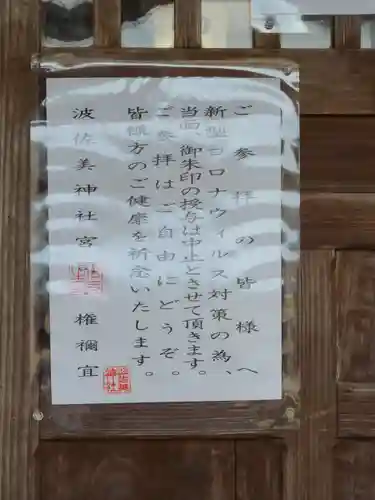 ご参拝の皆様へ
新型コロナウィルス対策の為、
当面、御朱印の授与は中止とさせて頂きます。
ご参拝はご自由にどうぞ。
皆様方のご健康を祈念いたします。
波佐美神社宮 権禰宜